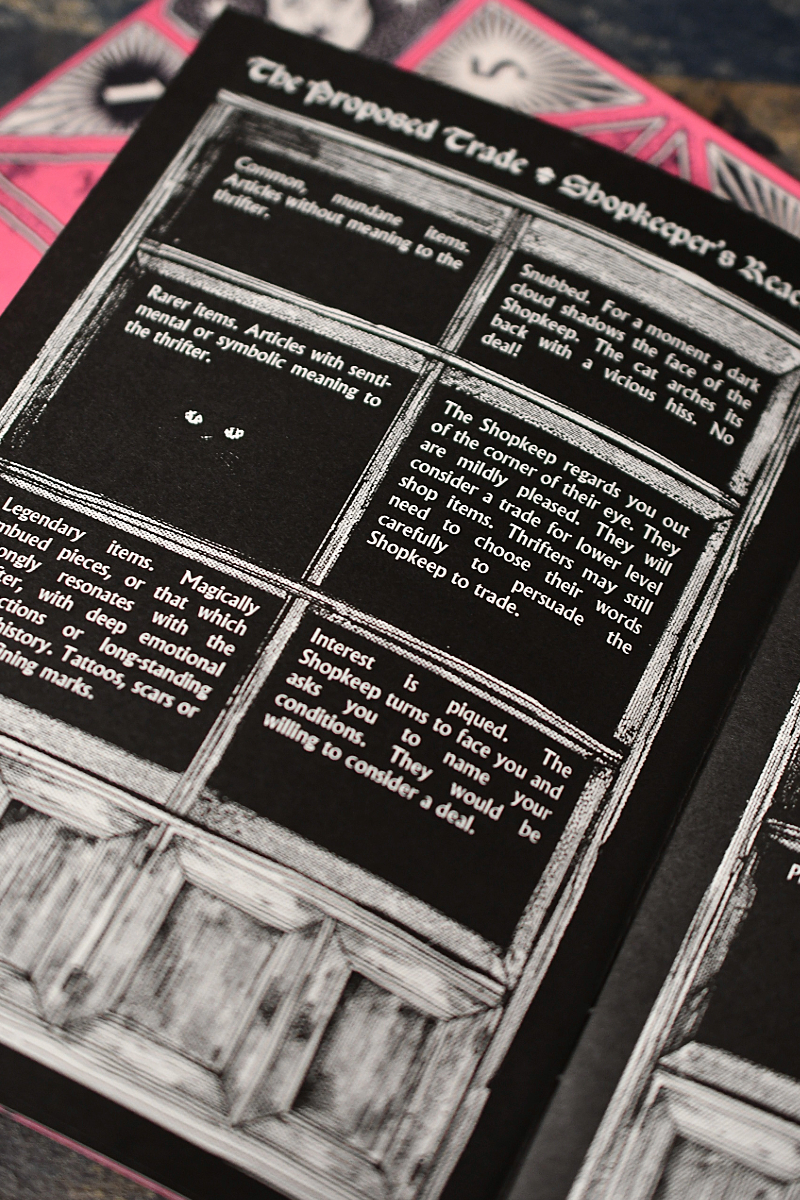 The Proposed Trade ✦ Shopkeeper's
Common, mundane items.
Articles without meaning to the
thrifter.
Snubbed. For a moment a dark
cloud shadows the face of the
Shopkeep. The cat arches its
back with a vicious hiss. No
deal!
Rarer items. Articles with senti-
mental or symbolic meaning to
the thrifter.
The Shopkeep regards you out
of the corner of their eye. They
are mildly pleased. They will
consider a trade for lower level
shop items. Thrifters may still
need to choose their words
carefully to persuade the
Shopkeep to trade.
Legendary items. Magically
pieces, or that which
resonates with the
with deep emotional
or long-standing
history. Tattoos, scars or
marks.
Interest is piqued. The
Shopkeep turns to face you and
asks you to name your
conditions. They would be
willing to consider a deal.